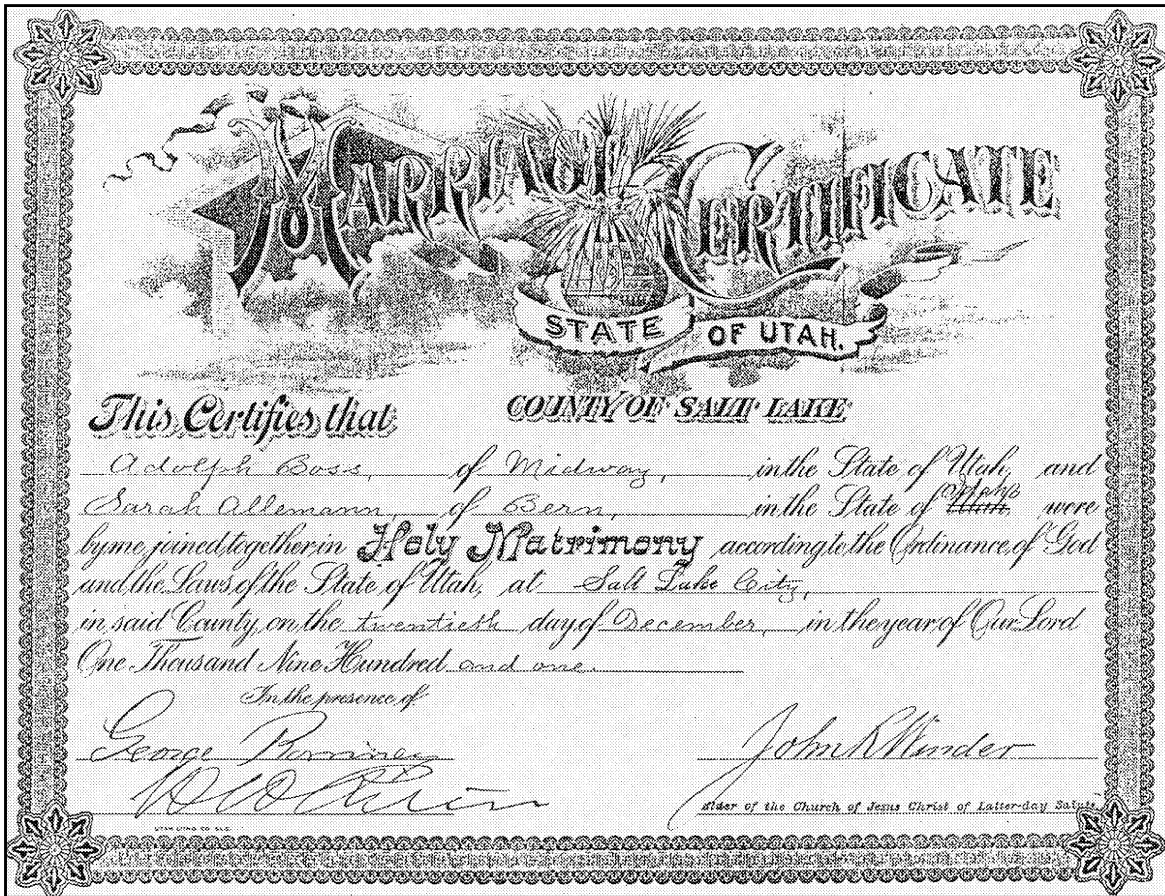 MARRIAGE CERTIFICATE
STATE OF UTAH.
This Certifies that COUNTY OF SALT LAKE
Adolph Boss, of Midway, in the State of Utah, and
Sarah Allemann, of Bern, in the State of Utah were
by me joined together in Holy Matrimony according to the Ordinance of God
and the Laws of the State of Utah, at Salt Lake City,
in said County, on the twentieth day of December, in the year of Our Lord
One Thousand Nine Hundred and one.
In the presence of
George Romney
John R Winder
Elder of the Church of Jesus Christ of Latter-day Saints
UTAH LITHO CO. SLC.